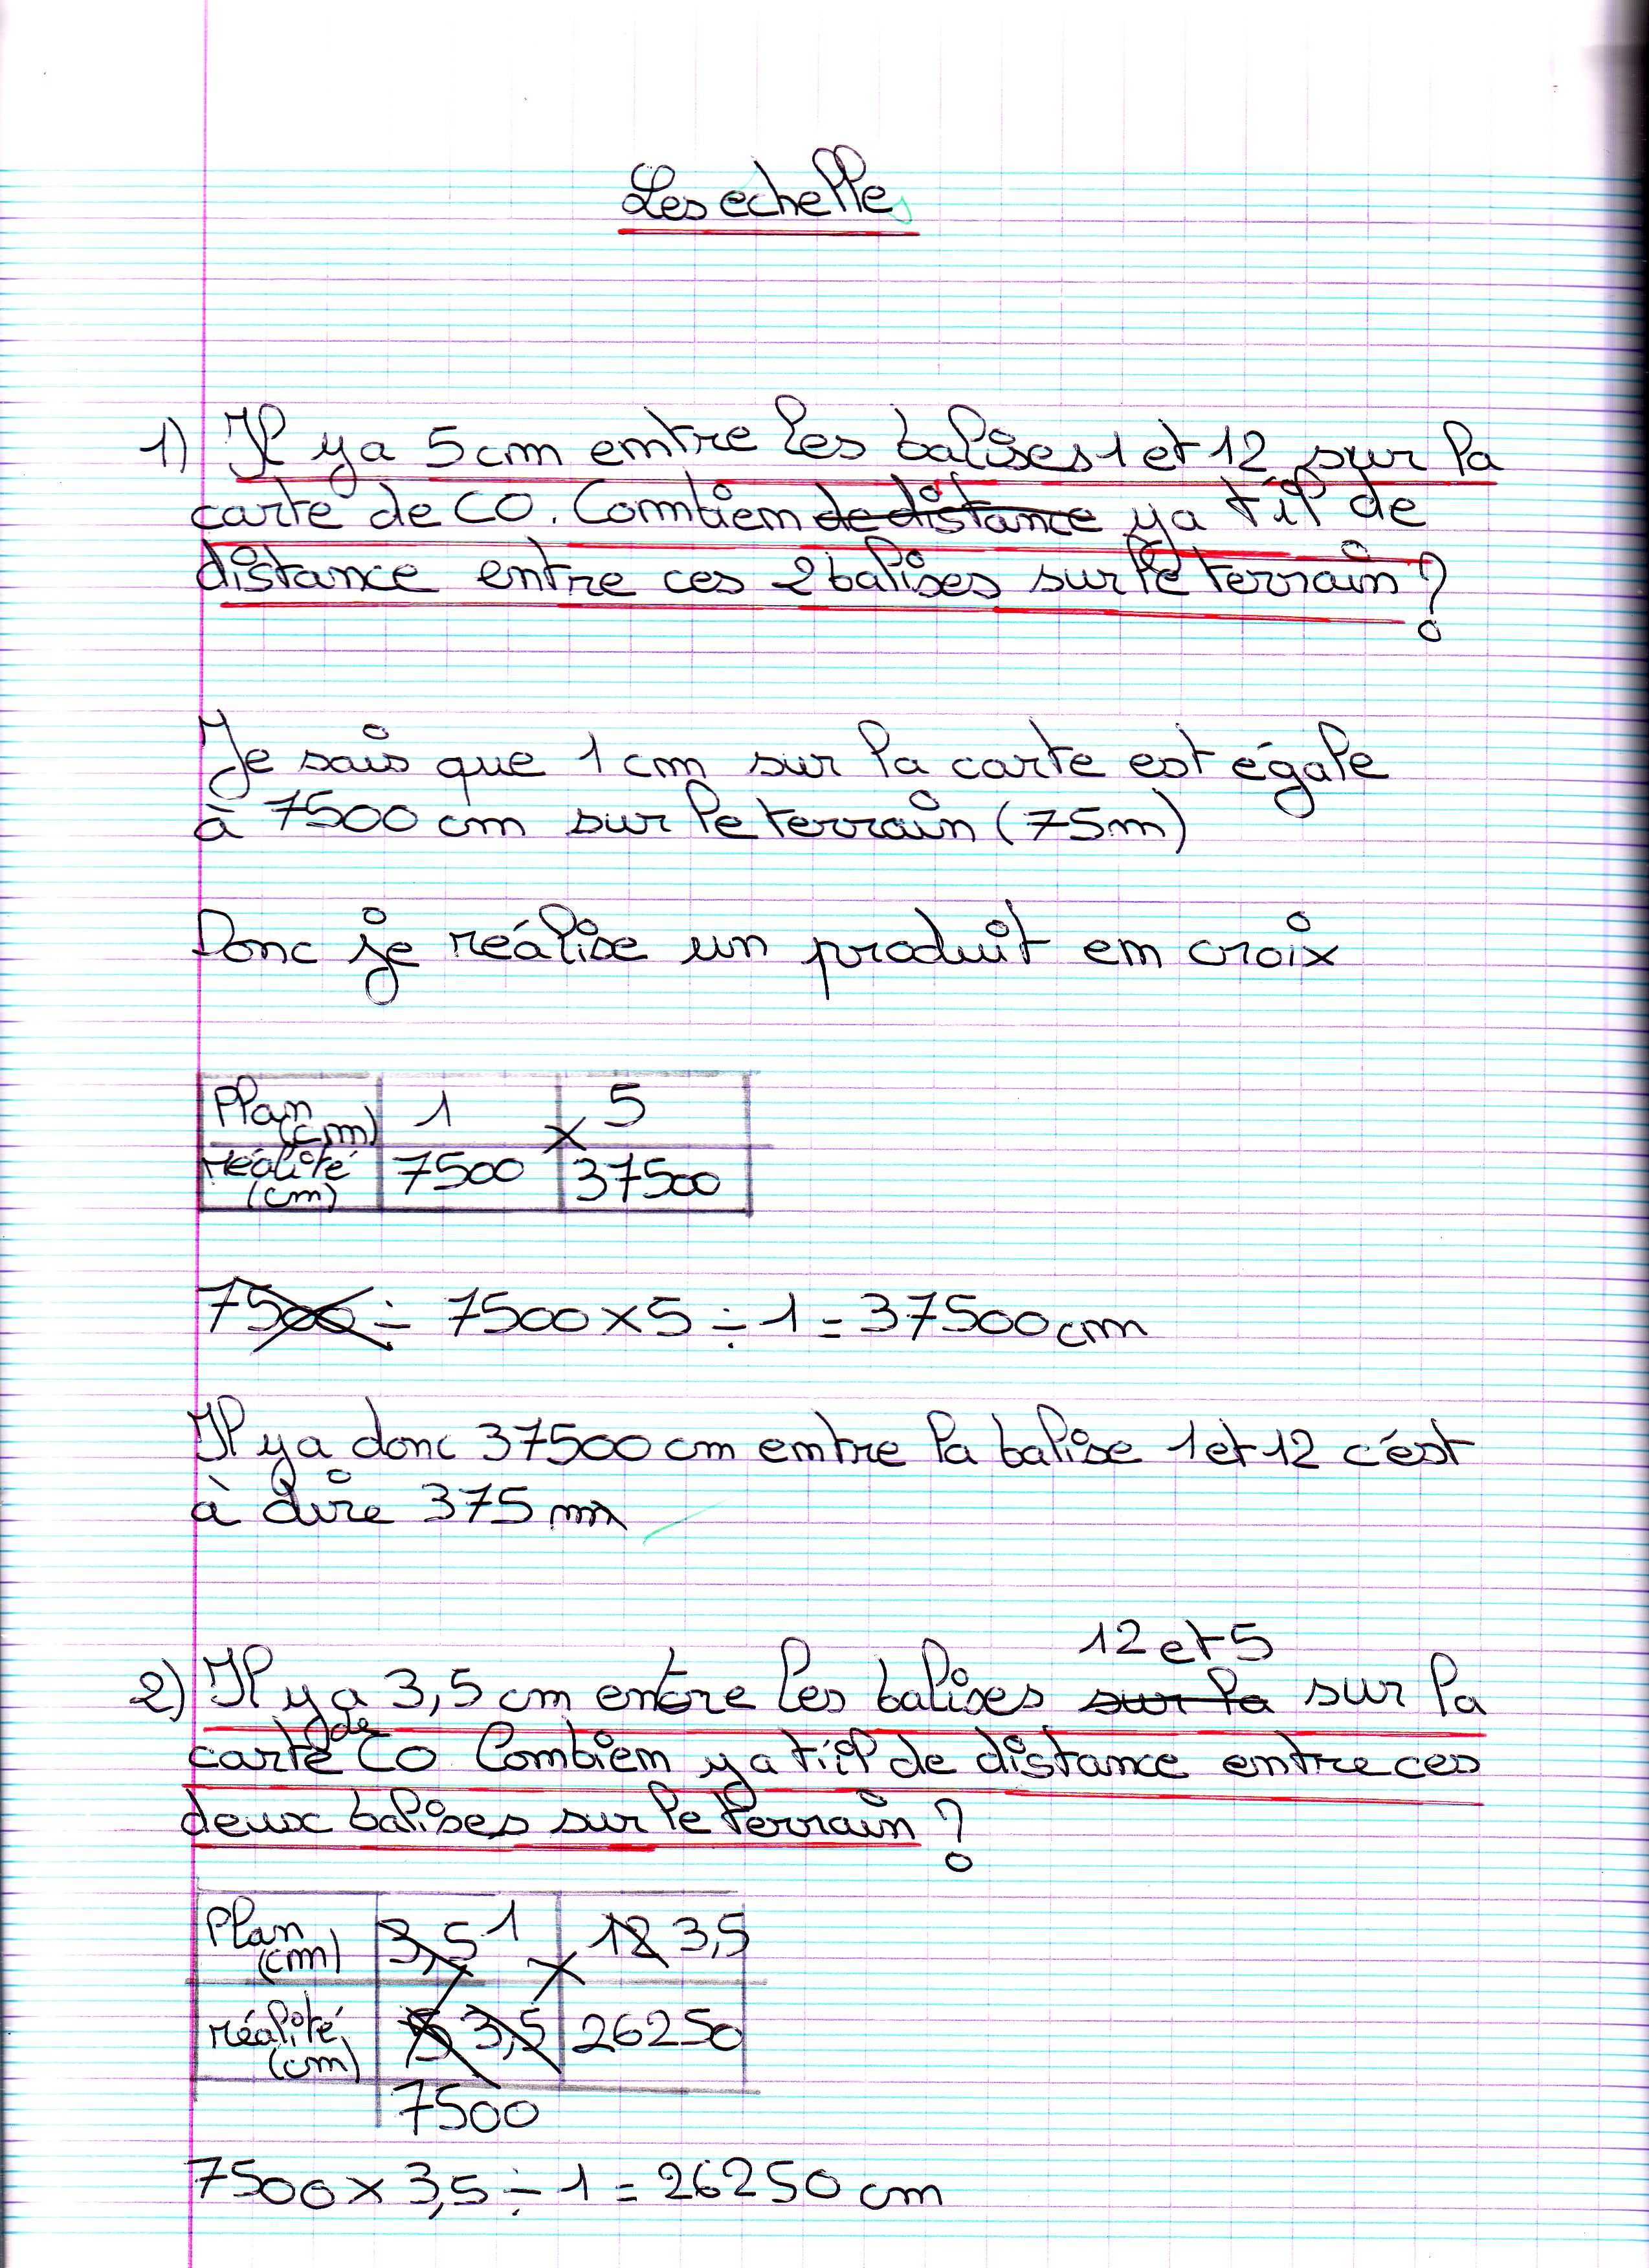 Les echelles
1) Il y a 5 cm entre les balises 1 et 12 sur la
carte de CO. Combien de distance y a t'il de
distance entre ces 2 balises sur le terrain ?
Je sais que 1 cm sur la carte est égale
à 7500 cm sur le terrain (75m)
Donc je réalise un produit en croix
Plan (cm) 1 × 5
réalité (cm) 7500 37500
7500 ÷ 7500 × 5 ÷ 1 = 37500 cm
Il y a donc 37500 cm entre la balise 1 et 12 c'est
à dire 375 m
12 et 5
2) Il y a 3,5 cm entre les balises sur la sur la
carte de CO Combien y a t'il de distance entre ces
deux balises sur le terrain ?
Plan (cm) 3,5 1 × 12 3,5
réalité (cm) 5 3,5 26250
7500
7500 × 3,5 ÷ 1 = 26250 cm